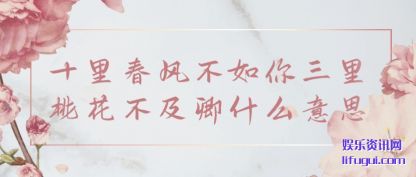 十里春风不如你三里
桃花不及卿什么意思
娱乐资讯网
lifugui.com